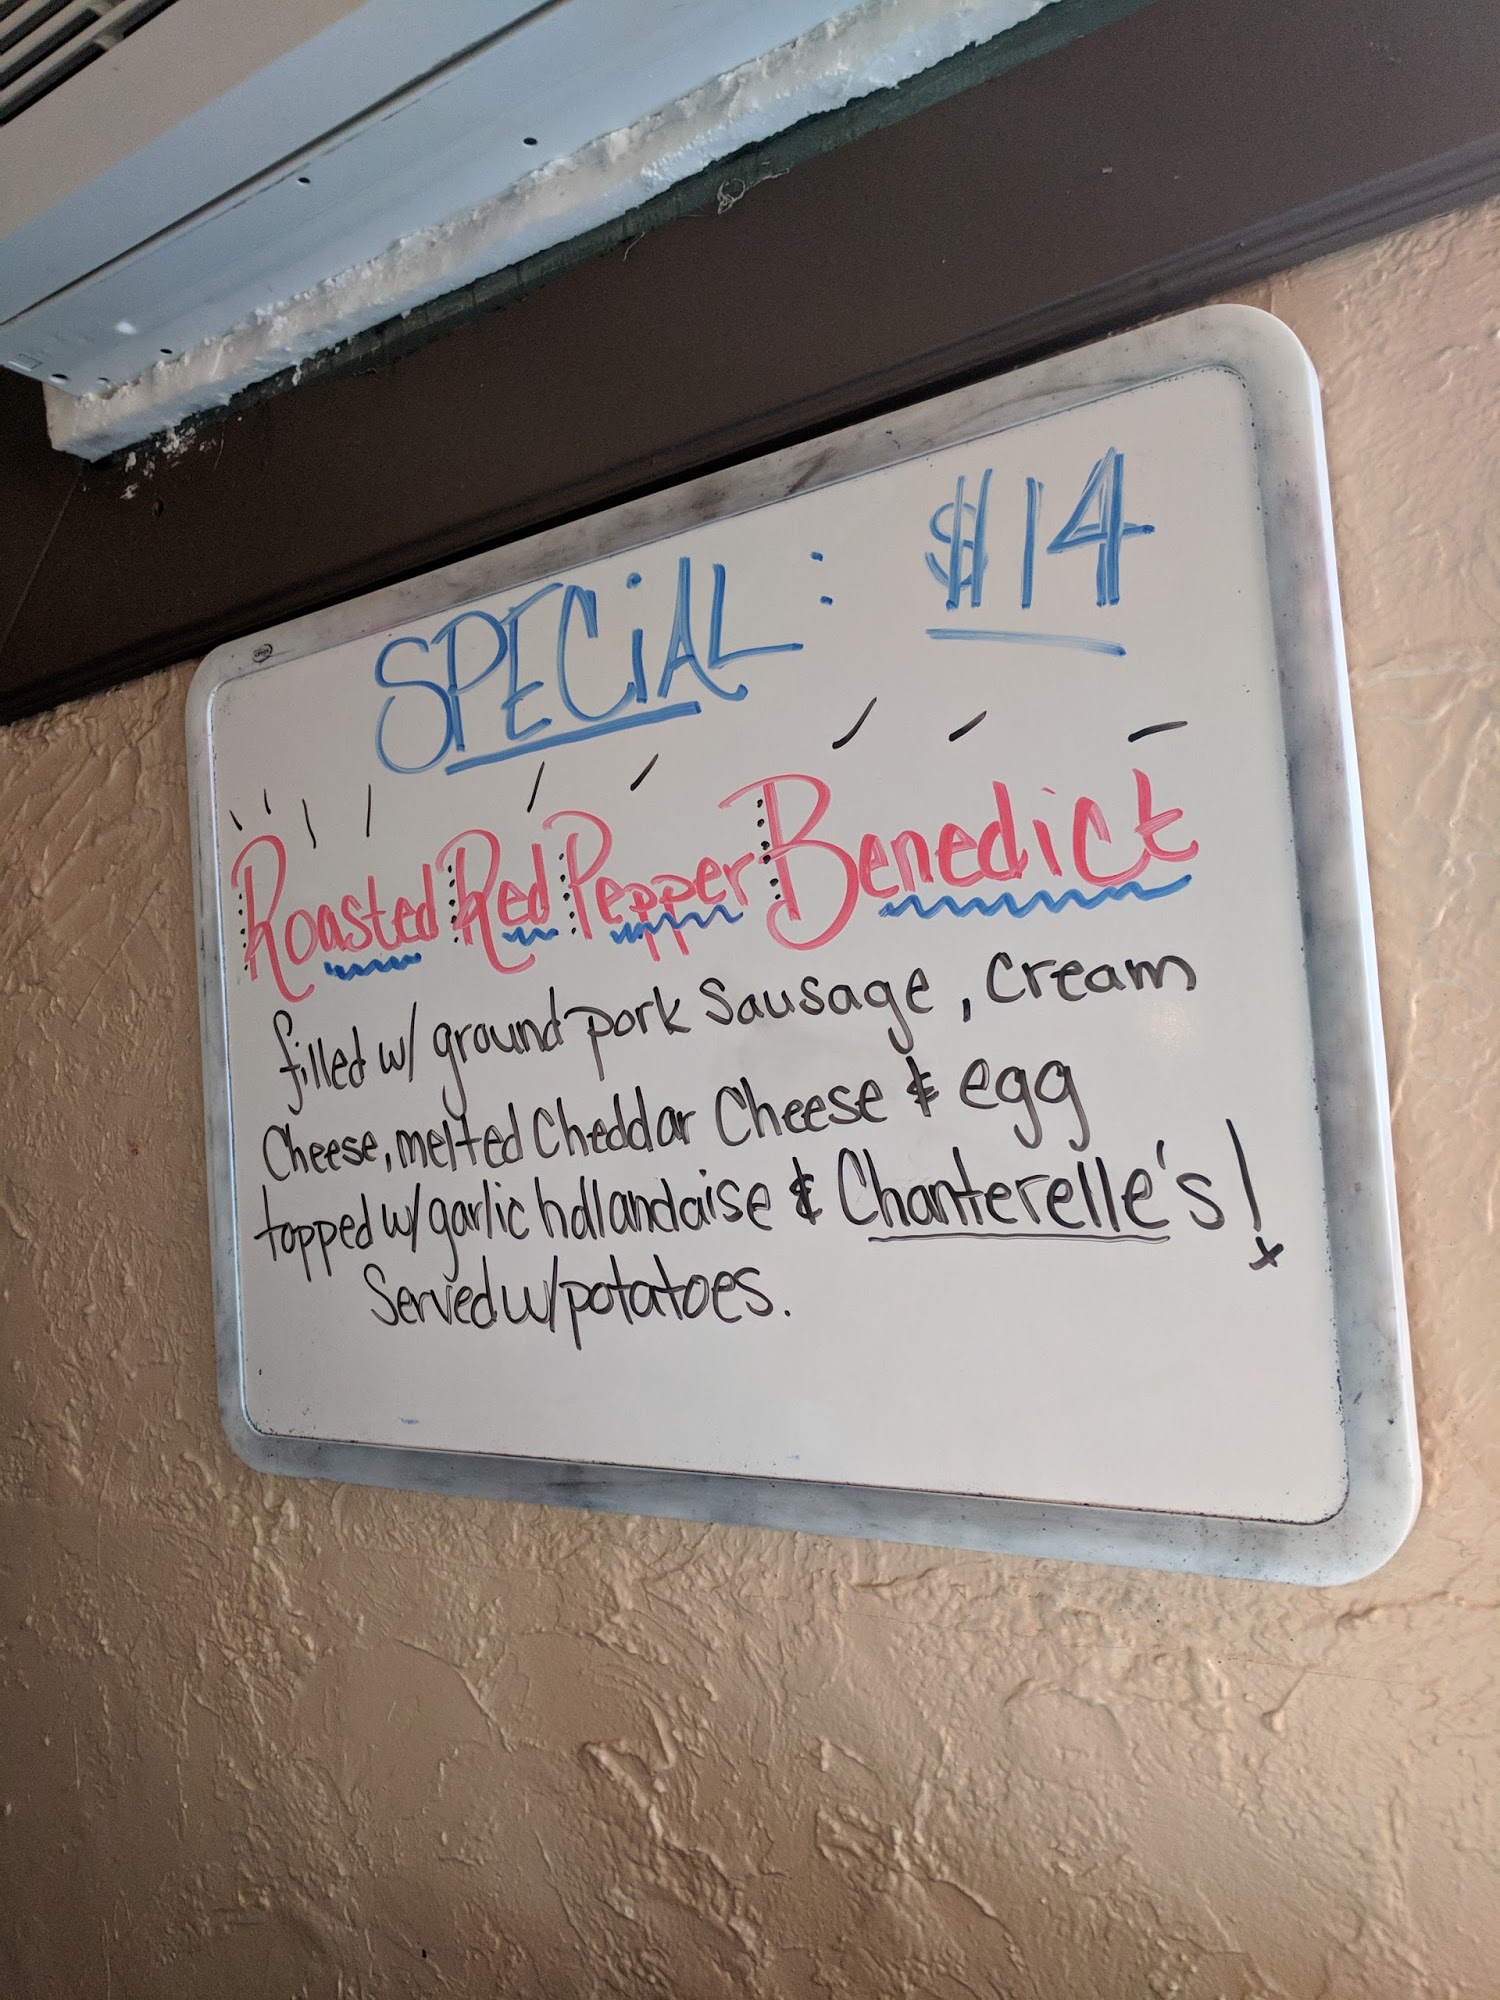 SPECiAL : $14
Roasted Red Pepper Benedict
filled w/ ground pork Sausage, Cream
Cheese, melted Cheddar Cheese & egg
topped w/ garlic hollandaise & Chanterelle's!
Served w/ potatoes.